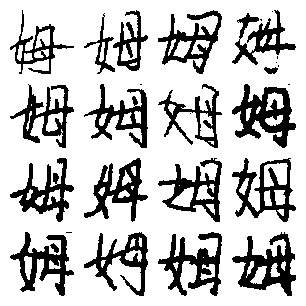 姆姆姆姆
姆姆姆姆
姆姆姆姆
姆姆姆姆